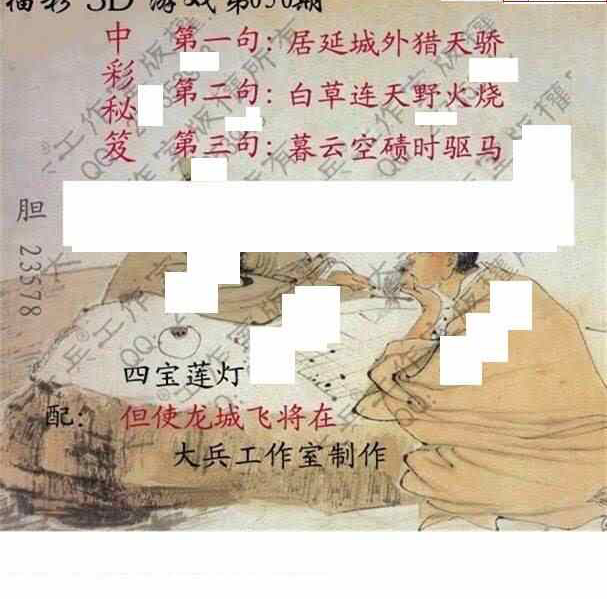 福彩3D游戏第030期
中彩秘笈
第一句：居延城外猎天骄
第二句：白草连天野火烧
第三句：暮云空碛时驱马
胆 23578
四宝莲灯
配：但使龙城飞将在
大兵工作室制作